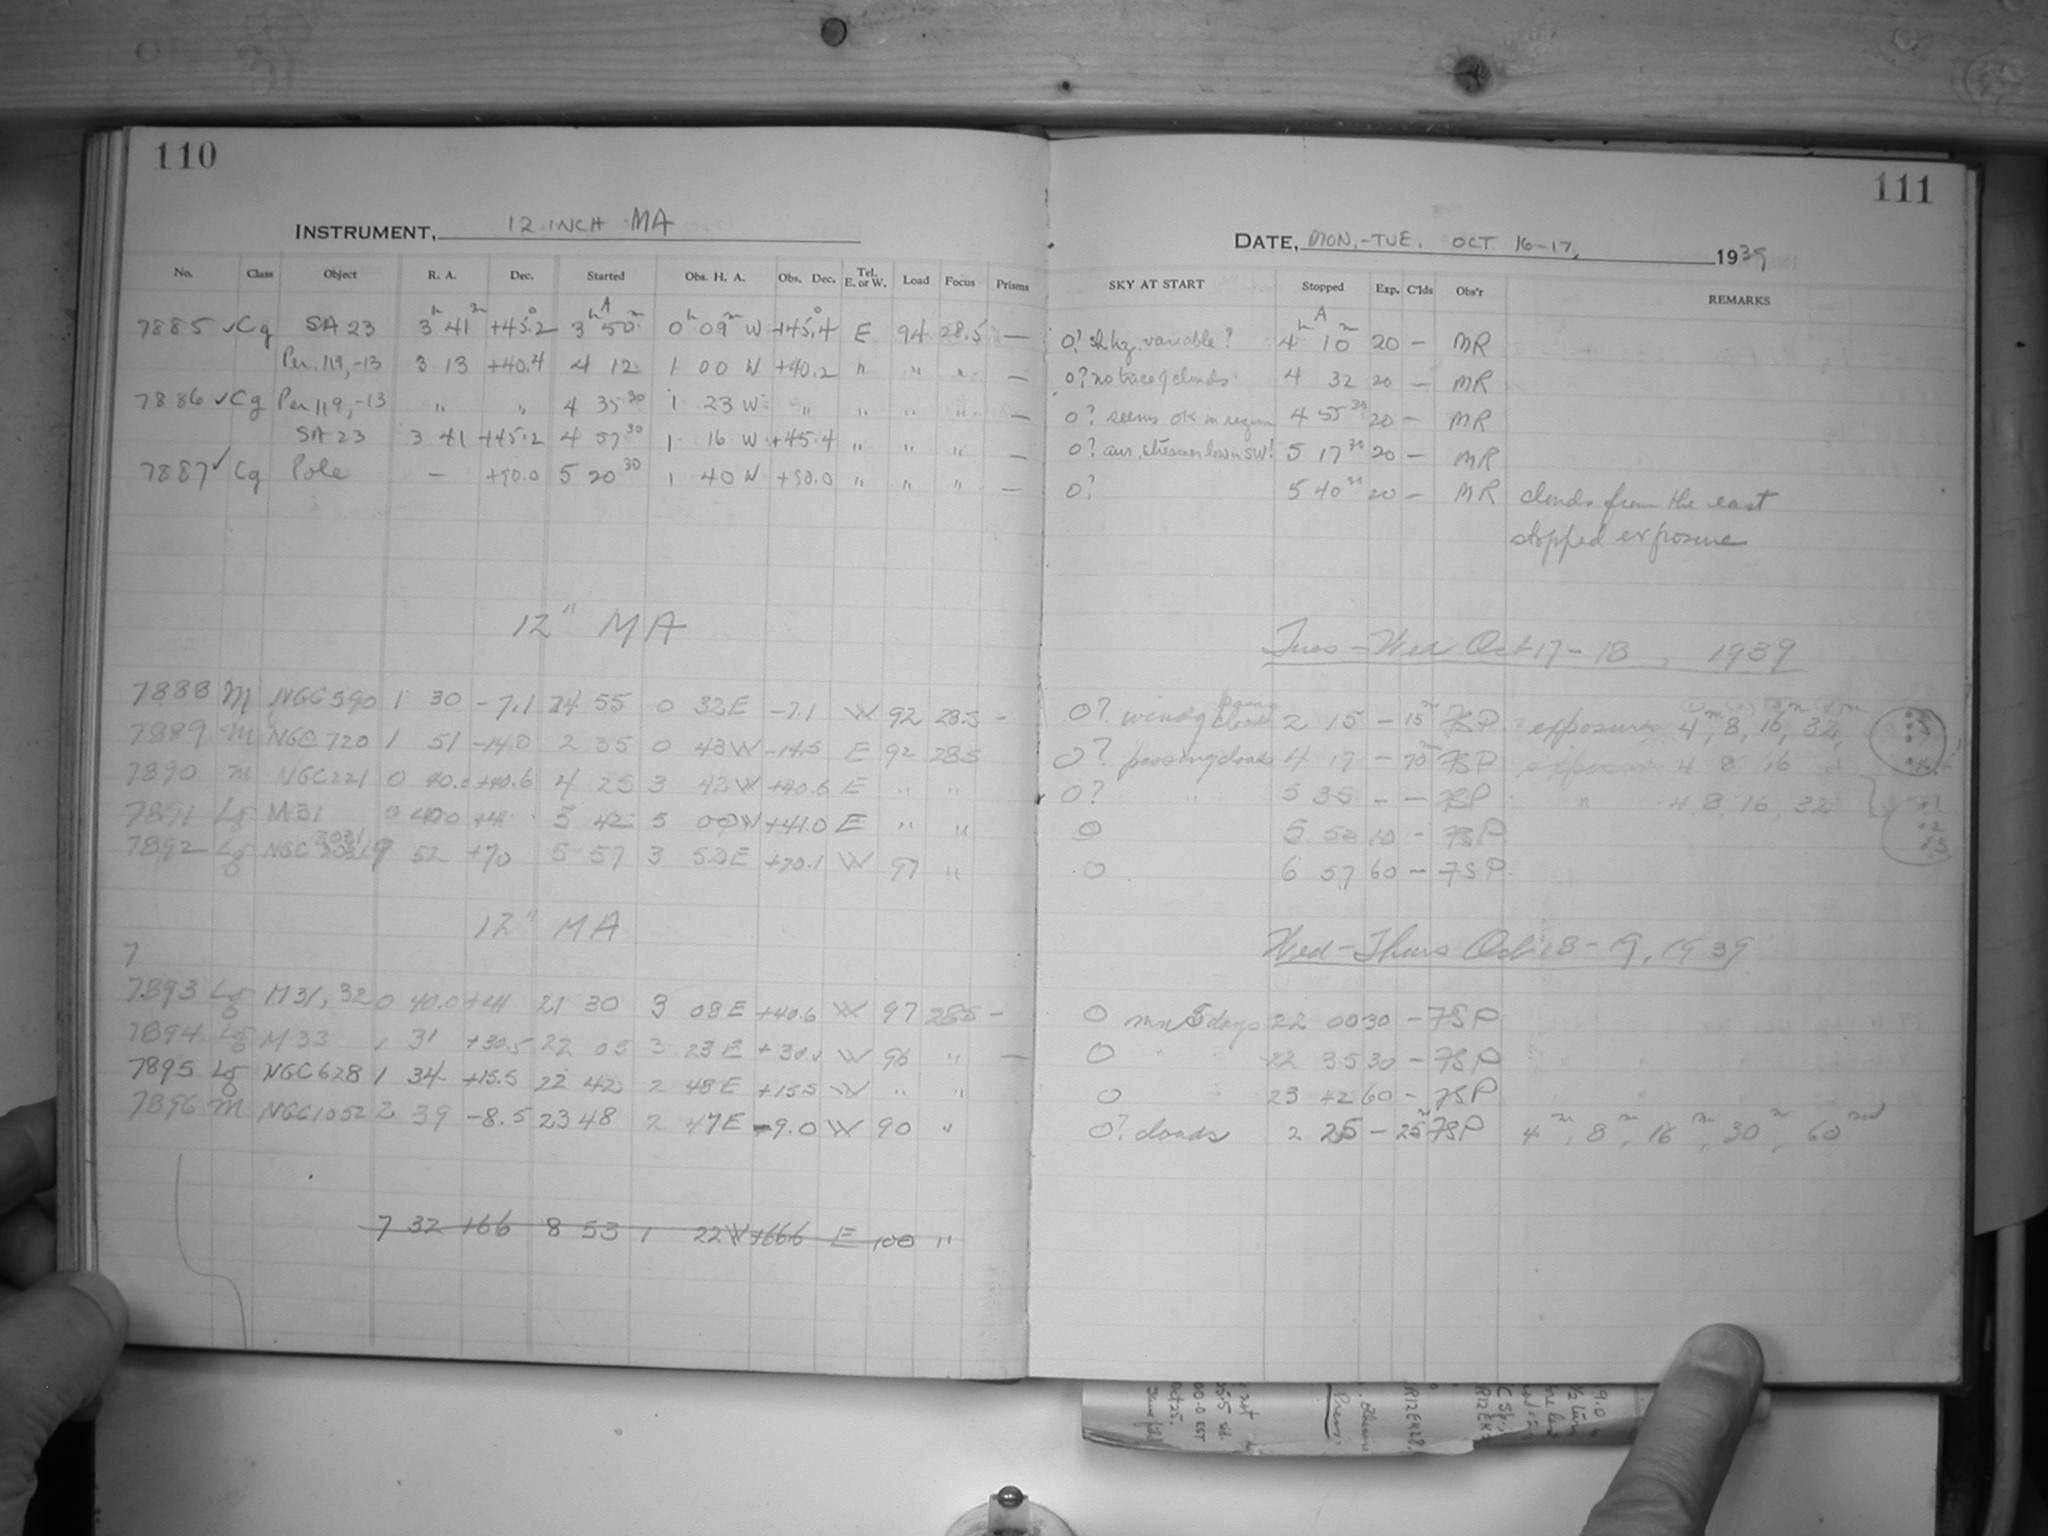 110
INSTRUMENT, 12 INCH MA
No. Class Object R. A. Dec. Started Obs. H. A. Obs. Dec. Tel. E. or W. Load Focus Prisms
7885 ✓ Cg SA 23 3h 41m +45.2° 3h 50m A 0h 09m W +45.4° E 94 28.5 —
Per. 119, -13 3 13 +40.4 4 12 1 00 W +40.2 " " " —
7886 ✓ Cg Per 119, -13 " " 4 35 30 1 23 W " " " " —
SA 23 3 41 +45.2 4 57 30 1 16 W +45.4 " " " —
7887 ✓ Cg Pole — +90.0 5 20 30 1 40 W +90.0 " " " —
12" MA
7888 M NGC 590 1 30 -7.1 55 0 32 E -7.1 W 92 28.5 -
7889 M NGC 720 1 51 -14.0 2 35 0 43 W -14.5 E 92 28.5
7890 M NGC 221 0 40.0 +40.6 4 25 3 42 W +40.6 E " "
7891 Lg M31 0 40.0 +41 5 42 5 00 W +41.0 E " "
7892 Lg NGC 3031 9 52 +70 5 57 3 50 E +70.1 W 97 "
12" MA
7
7893 Lg M31, 32 0 40.0 +41 21 30 3 08 E +40.6 W 97 28.5 -
7894 Lg M33 1 31 +30.5 22 05 3 23 E W 96 " —
7895 Lg NGC 628 1 34 +15.5 22 42 2 48 E +15.5 W " "
7896 M NGC 1052 2 39 -8.5 23 48 2 47 E -9.0 W 90 "
7 32 +66 8 53 1 22 W +66.6 E 100 "
111
DATE, MON.-TUE. OCT 16-17, 1939
SKY AT START Stopped Exp. C'lds Obs'r REMARKS
0? variable? 4h 10m A 20 — MR
0? no trace of clouds 4 32 20 — MR
0? seems OK in region 4 55 30 20 — MR
0? aur. streamer low in SW! 5 17 30 20 — MR
0? 5 40 30 20 — MR clouds from the east
stopped exposure
Tues - Wed Oct 17-18, 1939
0? windy 2 15 — 15m FSP exposures 4m, 8, 16, 32,
0? passing clouds 4 17 — 70m FSP 4 8 16
0? " 5 35 — — FSP " 4, 8, 16, 32
0 5 52 10 - FSP
0 6 57 60 — FSP
Wed - Thurs Oct 18-19, 1939
0 22 00 30 - FSP
0 22 35 30 - FSP
0 23 42 60 - FSP
0? clouds 2 25 — 25m FSP 4m, 8m, 16m, 30m, 60m